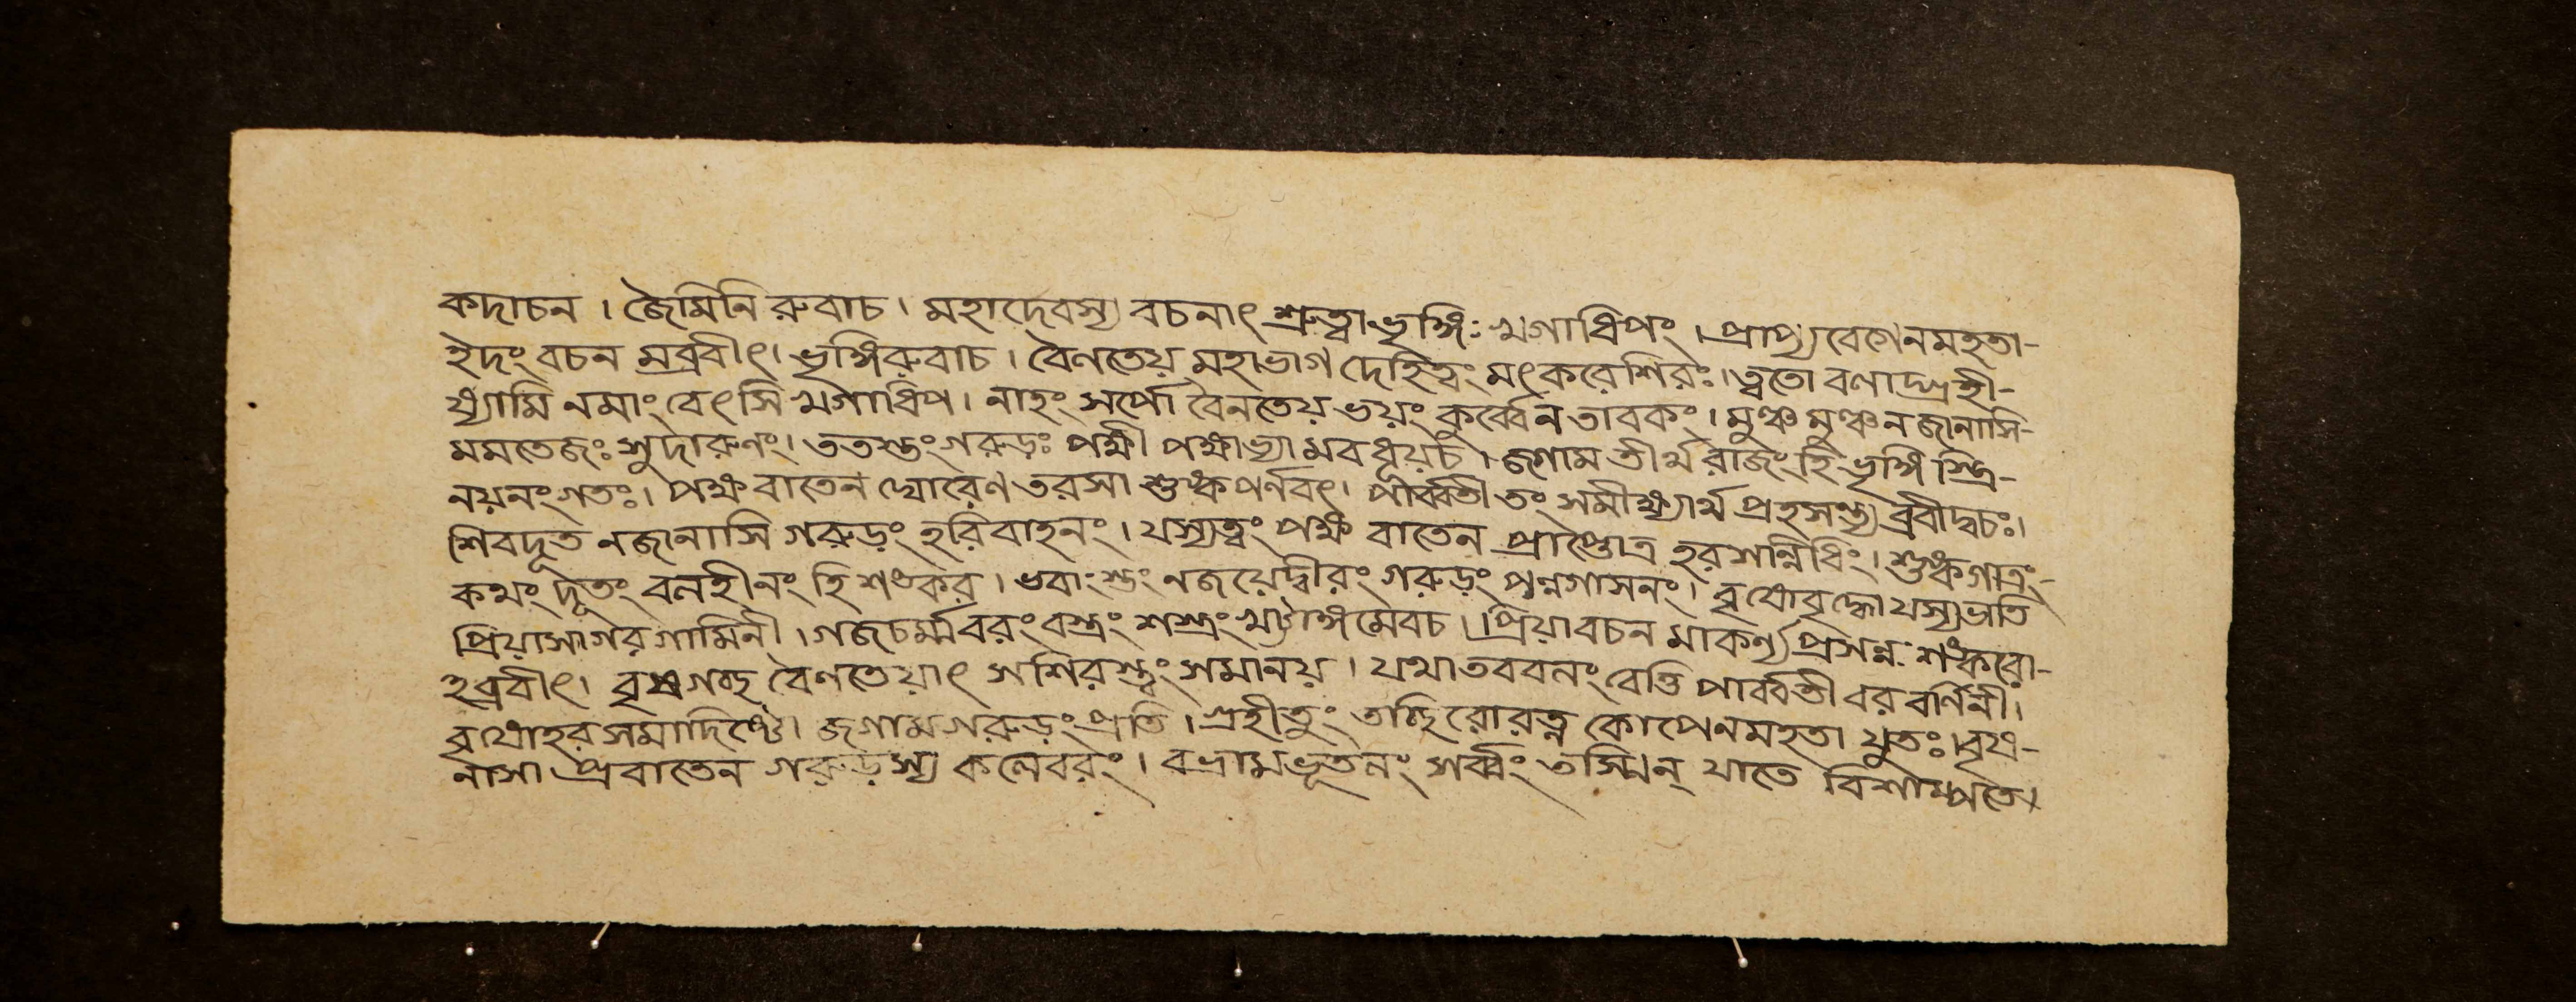 কদাচন । জৈমিনি রুবাচ । মহাদেবস্য বচনাৎ শ্রুত্বা ভৃঙ্গিঃ খগাধিপং । প্রাপ্য বেগেনমহতা-
ইদং বচন মব্রবীৎ । ভৃঙ্গিরুবাচ । বৈণতেয় মহাভাগ দেহিত্বং মৎকরেশিরঃ । ত্বতো বণাদ্গ্রহী-
ষ্যামি নমাং বেৎসি খগাধিপ । নাহং সর্পো বৈনতেয় ভয়ং কুর্ব্বেন তাবকং । মুঞ্চ মুঞ্চ নজানাসি-
মমতেজঃ সুদারুনং । ততস্তং গরুড়ঃ পক্ষী পক্ষাভ্যা মবধূয়চ । জগাম তীর্থরাজং হি ভৃঙ্গি স্ত্রি-
নয়নং গতঃ । পক্ষবাতেন ঘোরেণ তরসা শুষ্কপর্নবৎ । পার্ব্বতী তং সমীক্ষ্যাথ প্রহসন্ত্য ব্রবীদ্বচঃ ।
শিবদূত নজানাসি গরুড়ং হরিবাহনং । যস্যত্বং পক্ষ বাতেন প্রাপ্তোত্র হরশন্নিধিং । শুষ্কগাত্রং-
কথং দূতং বলহীনং হি শঙকর । ভবাংস্তং নজয়েদ্বীরং গরুড়ং পন্নগাসনং । বৃষোবৃদ্ধোযস্যভাতি
প্রিয়াসাগর গামিনী । গজচর্ম্মবরংবস্ত্রং শস্ত্রং খট্টাঙ্গমেবচ । প্রিয়াবচন মাকর্ণ্য প্রসন্নঃ শঙ্করো-
হব্রবীৎ । বৃষগচ্ছ বৈণতেয়াৎ সশিরস্ত্বং সমানয় । যথাতববলং বেত্তি পার্ব্বতী বর বর্ণিনী ।
বৃষোহর সমাদিষ্টো । জগামগরুড়ং প্রতি । গ্রহীতুং তচ্ছিরোরত্ন কোপেনমহতা যুতঃ । বৃষ-
নাসা প্রবাতেন গরুড়স্য কলেবরং । বভ্রামভূতলং সর্ব্বং তস্মিন্ যাতে বিশাম্পতে ।